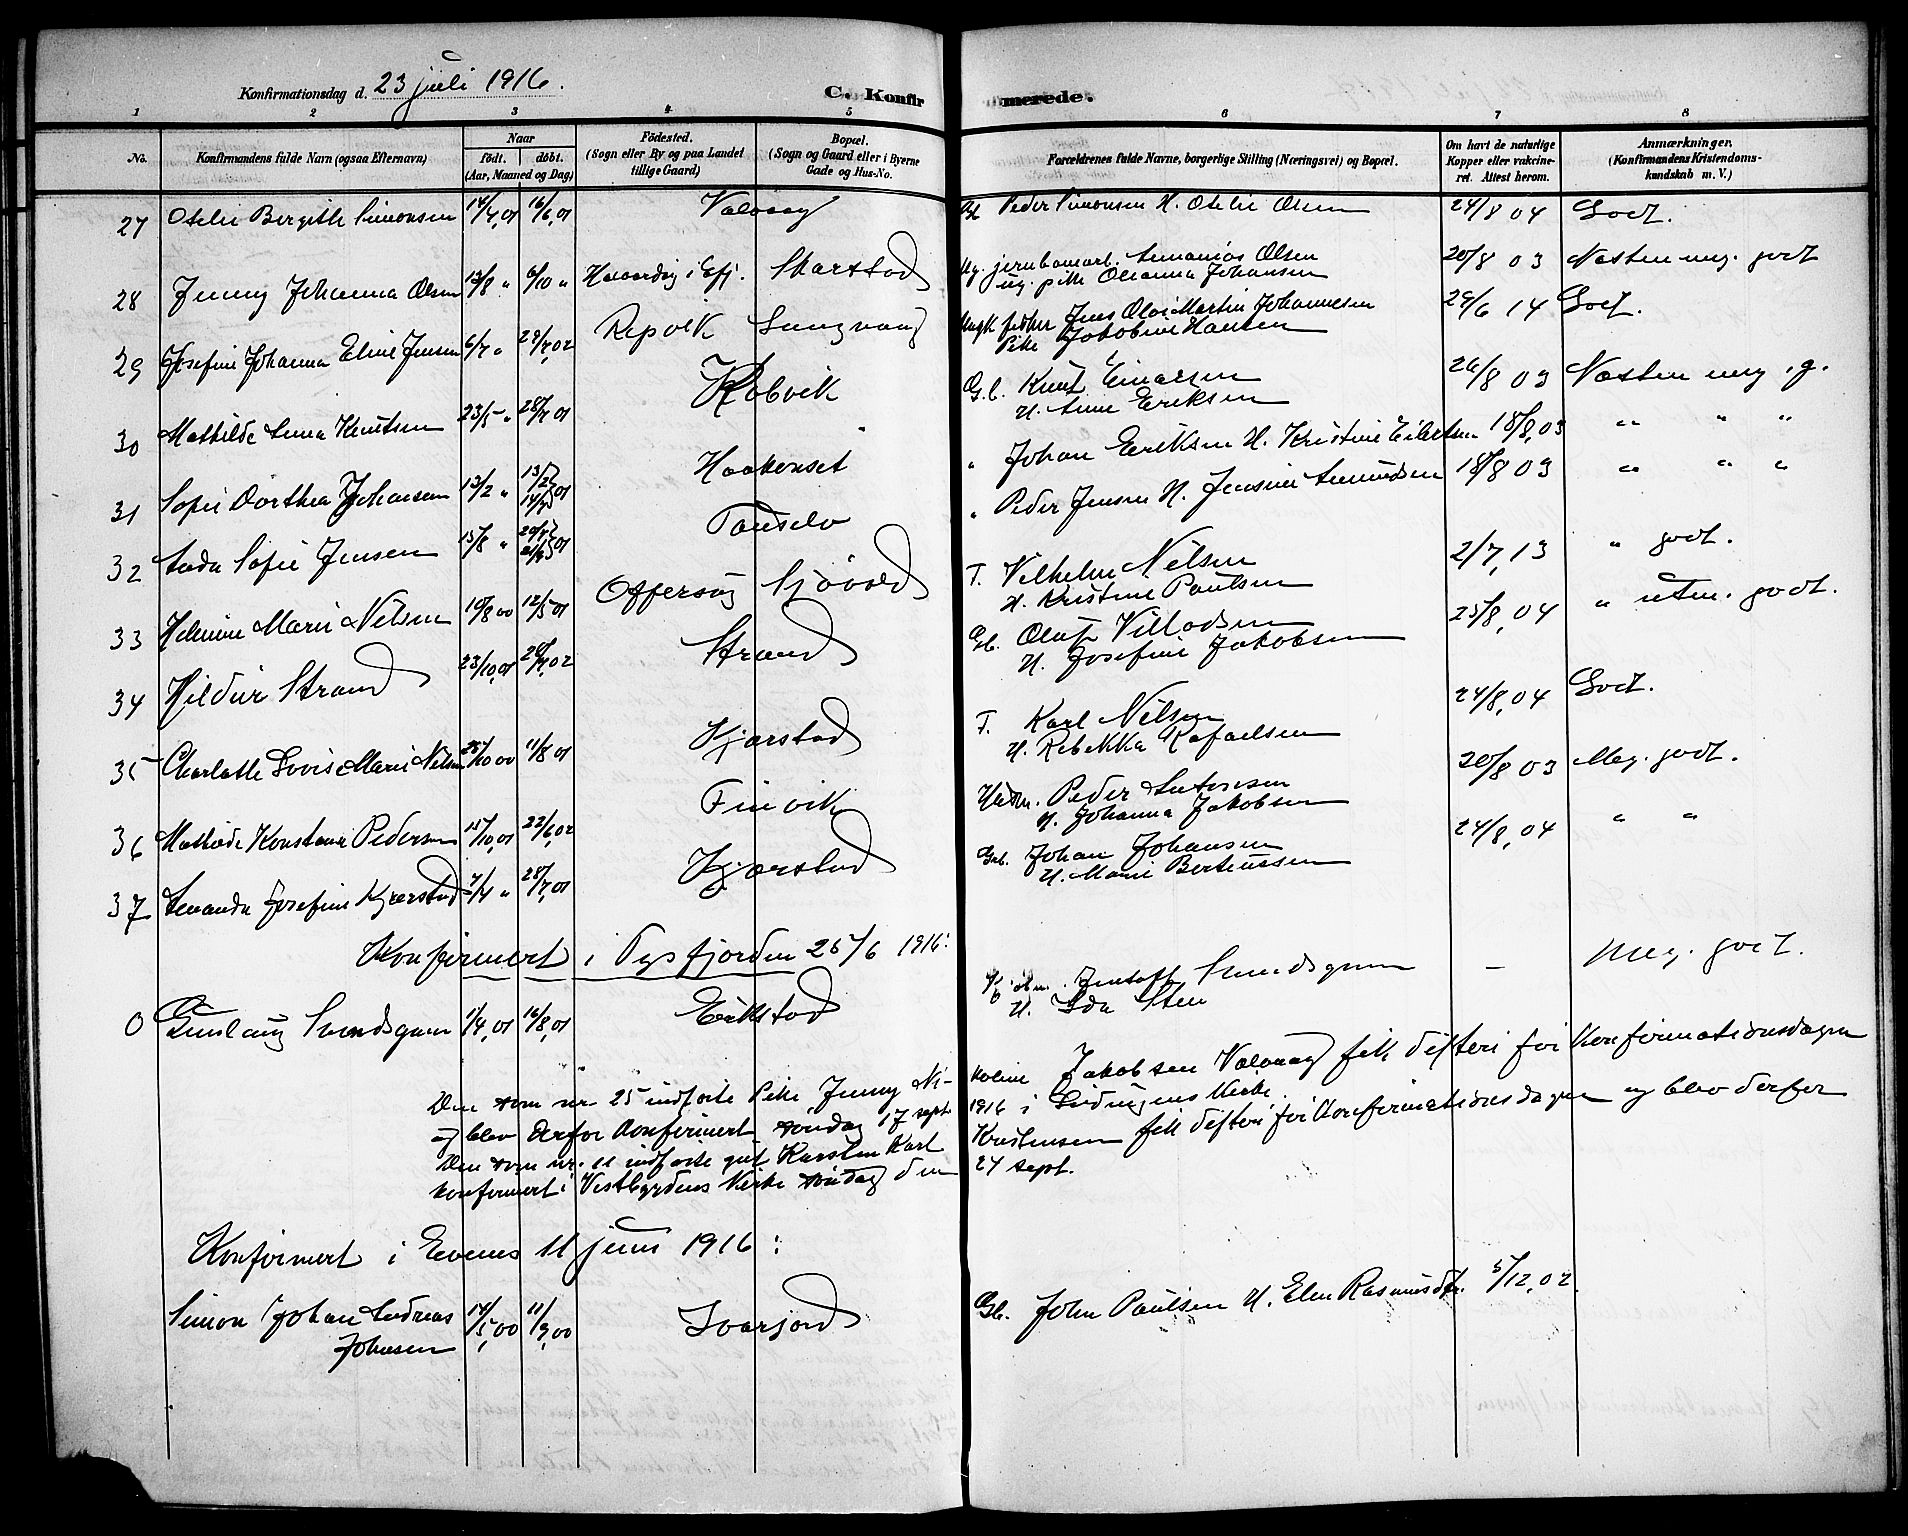 Konfirmationsdag d. 23 juli 1916. C. Konfirmerede.
1 2 3 4 5 6 7 8
No. Konfirmandens fulde Navn (ogsaa Efternavn) Naar født. døbt. (Aar, Maaned og Dag) Fødested. (Sogn eller By og paa Landet tillige Gaard) Bopæl. (Sogn og Gaard eller i Byerne Gade og Hus-No. Forældrenes fulde Navne, borgerlige Stilling (Næringsvei) og Bopæl. Om havt de naturlige Kopper eller vakcineret. Attest herom. Anmærkninger. (Konfirmandens Kristendomskundskab m. V.)
27 Otelie Bergitte Simonsen 14/4,01 16/6,01 Valvaag Peder Simonsen H. Otelie Olsen 24/8 04 Godt.
28 Jenny Johanna Olsen 13/8 " 6/10 " i Efj. Skarstad Ug. jernbanearb. Ananias Olsen
ug. pike Oleanna Johansen 20/8 03 Næsten meg. godt
29 Josefine Johanna Eline Jensen 6/7 " 29/7,02 Repvik Ungk. fisker Jens Olai Martin Johannesen
Pike Jakobine Hansen 29/6 14 Godt.
30 Mathilde Anna Knutsen 23/5 " 28/7 01 Robvik G.b. Knut Einarsen
H. Anne Eriksen 26/8 03 Næsten meg. g.
31 Sofie Dorthea Johansen 13/2 " 13/2 01 Haakonset " Johan Eriksen H. Kristine Eilertsen 18/8,03 " " "
32 Sofie Jensen 15/8 " Tauselv " Peder Jensen H. Jensine Amundsen 18/8 03 " " "
33 Helmine Marie Nilsen 10/8 00 12/5 01 Offersøy T. Vilhelm Nilsen
H. Kristine Paulsen 2/7,13 " godt.
34 Hildur Strand 23/10,01 20/7,02 Strand Gb. Olaf Villadsen
H. Josefine Jakobsen 25/8,04 " uten. godt.
35 Charlotte Lovise Marie Nilsen 25/10 00 11/8 01 Kjærstad T. Karl Nilsen
H. Rebekka Rafaelsen 24/8,04 Godt.
36 Konstanse Pedersen 15/10,01 22/6,02 Finvik Peder Antonsen
H. Johanna Jakobsen 20/8 03 Meg. godt.
37 Amanda Josefine Kjærstad 7/4 " 28/7,01 Kjærstad Gb. Johan Johansen
H. Marie Berteussen 24/8,04 " "
Konfirmert i Tysfjorden 25/6 1916:
0 Gunlaug Svendsgaan 1/4,01 16/8,01 Erikstad Svendsgaan
H. Ida Sten – Meg. godt.
Den som nr 25 indførte Pike, Jenny Nikoline Jakobsen Valvaag fik difteri før Konfirmationsdagen
og blev derfor Konfirmert søndag 17 sept. 1916 i Lødingens Kirke.
Den som nr. 11 indførte gut Karsten Karl Kristensen fik difteri før Konfirmationsdagen og blev derfor
konfirmert i Vestbygdens Kirke søndag den 24 sept.
Konfirmert i Evenes 11 juni 1916:
Simon Johan Andreas
Johnsen 14/5,00 11/9,00 Ivarjord Gb. John Paulsen H. Elen Rasmusdtr. 5/12,02.